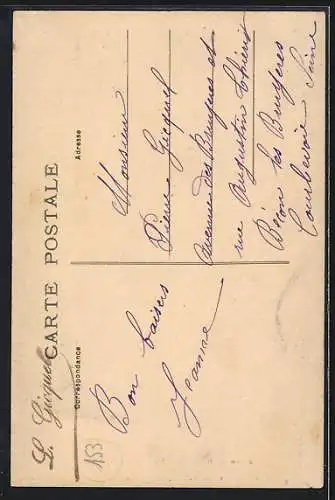 L. Gicquel
CARTE POSTALE
Correspondance
Adresse
Bon baisers
Jeanne
Monsieur
Pierre Gicquel
Avenue des Bruyères et
rue Augustin Thierry
Bécon les Bruyères
Courbevoie Seine
153